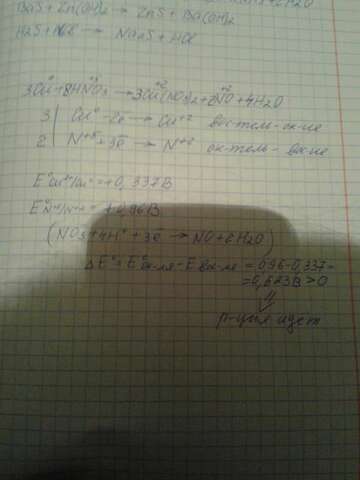 BaS + Zn(OH)2 → ZnS + Ba(OH)2
H2S + → Na2S + HCl
3Cu⁰ + 8HN⁺⁵O3 → 3Cu⁺²(NO3)2 + 2N⁺²O + 4H2O
3 | Cu⁰ - 2e → Cu⁺² вос-тель - ок-ие
2 | N⁺⁵ + 3e → N⁺² ок-тель - вос-ие
E⁰Cu²⁺/Cu⁰ = +0,337В
E⁰N⁺⁵/N⁺² = +0,96В
(NO3 + 4H⁺ + 3e → NO + 2H2O)
ΔE⁰ = E⁰ок-ля - E⁰вос-ля = 0,96 - 0,337 =
= 0,623В > 0
⇓
р-ция идет